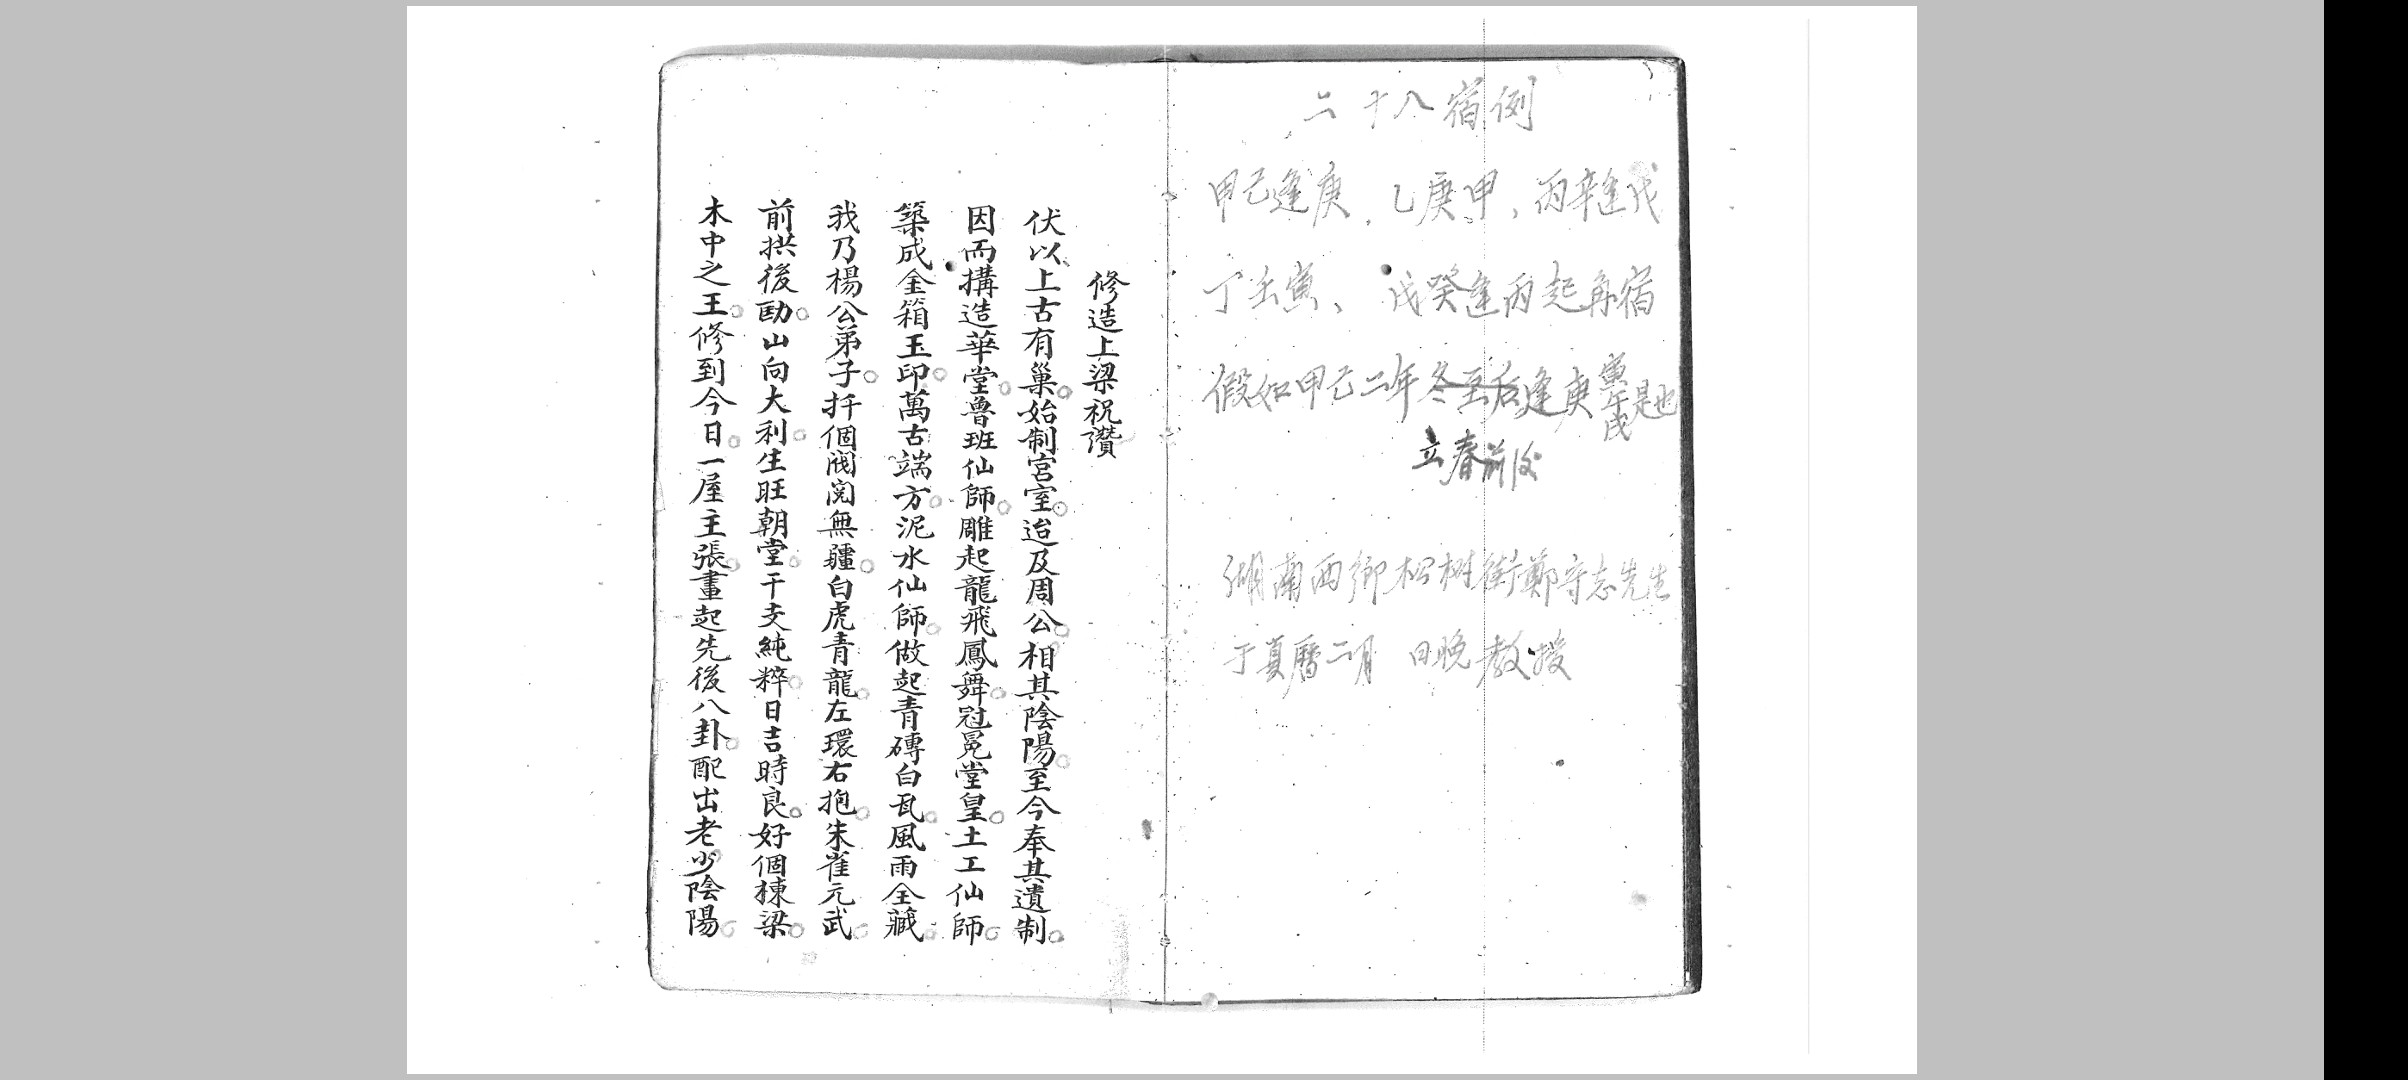 二十八宿例
甲己逢庚、乙庚申、丙辛逢戊
丁壬寅、戊癸逢丙起角宿
假如甲己二年冬至后逢庚寅午戌是也
立春前后
湖南西鄉松树街鄭守志先生
于真曆二月 日晚教授
修造上梁祝讚
伏以上古有巢始制宮室迨及周公相其陰陽至今奉其遺制
因而搆造華堂魯班仙師雕起龍飛鳳舞冠冕堂皇土工仙師
築成金箱玉印萬古端方泥水仙師做起青磚白瓦風雨全藏
我乃楊公弟子扦個閥閱無疆白虎青龍左環右抱朱雀元武
前拱後山向大利生旺朝堂干支純粹日吉時良好個棟梁
木中之王修到今日一屋主張畫起先後八卦配出老少陰陽